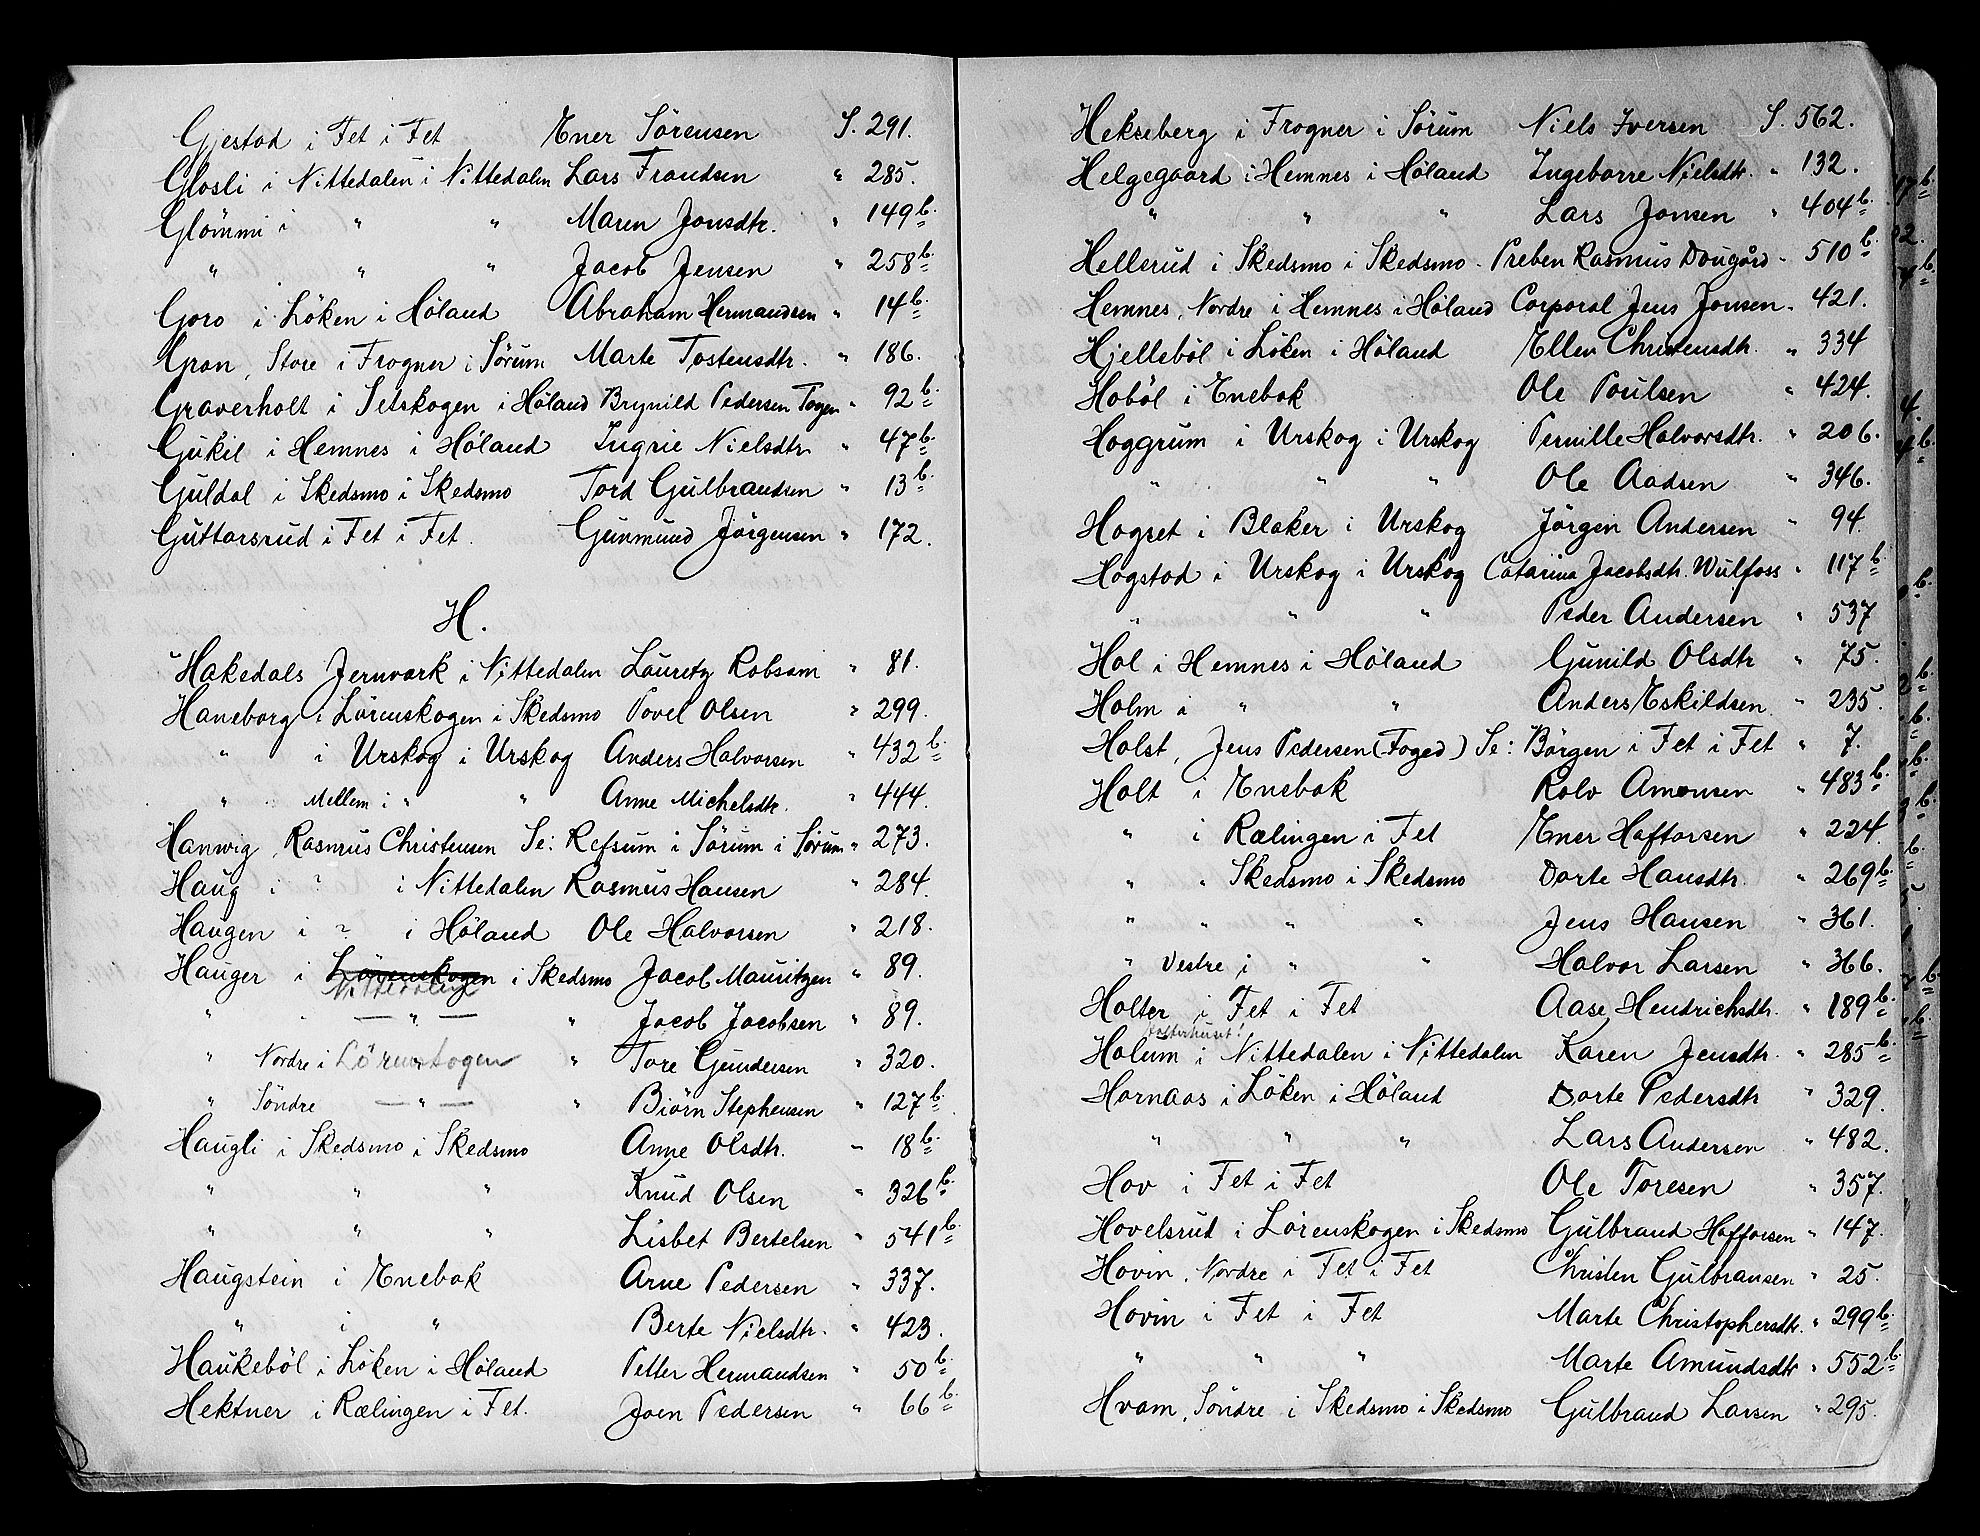 Gjestad i Fet i Fet Ener Sörensen S. 291.
Glosli i Nittedalen i Nittedalen Lars Frandsen " 285.
Glömmi i " " Maren Jonsdtr. " 149 b.
" " " Jacob Jensen " 258 b.
Goro i Löken i Höland Abraham Hermandsen " 14 b.
Gran, Store i Frogner i Sörum Marte Tostensdtr. " 186.
Graverholt i Setskogen i Höland Brynild Pedersen Toyen " 92 b.
Gukil i Hemnes i Höland Ingrie Nielsdtr " 47 b.
Guldal i Skedsmo i Skedsmo Tord Gulbrandsen " 13 b.
Guttorsrud i Fet i Fet. Gunmund Jörgensen " 172.
H.
Hakedals Jernvark i Nittedalen Lauritz Robsam " 81.
Haneborg i Lörenskogen i Skedsmo Povel Olsen " 299.
" i Urskog i Urskog Anders Halvorsen " 432 b.
" Mellem i " " Anne Michelsdtr. " 444.
Hanwig, Rasmus Christensen Se: Refsum i Sörum i Sörum " 273.
Haug i ? i Nittedalen Rasmus Hansen " 284.
Haugen i ? i Höland Ole Halvorsen " 218.
Hauger i Lörenskogen i Skedsmo Jacob Mauritzen " 89.
Nittedalen
" — " — " Jacob Jacobsen " 89.
" Nordre i Lörenskogen " Tore Gundersen " 320.
" Söndre — " — " Biörn Stephensen " 127 b.
Haugli i Skedsmo i Skedsmo Anne Olsdtr. " 18 b.
" " " Knud Olsen " 326 b.
" " " Lisbet Bertelsen " 541 b.
Haugstein i Enebak Arne Pedersen " 337.
" i " Berte Nielsdtr. " 423.
Haukeböl i Löken i Höland Petter Hermandsen " 50 b.
Hektner i Rælingen i Fet. Joen Pedersen " 66 b.
Hekseberg i Frogner i Sörum Niels Iversen S. 562.
Helgegaard i Hemnes i Höland Ingeborre Nielsdtr. " 132.
" " " Lars Jonsen " 404 b.
Hellerud i Skedsmo i Skedsmo - Preben Rasmus Dougård - 510 b.
Hemnes, Nordre i Hemnes i Höland Corporal Jens Jonsen - 421.
Hjelleböl i Löken i Höland Ellen Christensdtr. " 334
Hoböl i Enebak Ole Poulsen " 424.
Hoggrum i Urskog i Urskog Pernille Halvorsdtr. " 206.
" " " Ole Aadsen " 346.
Hogset i Blaker i Urskog Jörgen Andersen " 94.
Hogstad i Urskog i Urskog Catarina Jacobsdtr. Wulfoss " 117 b.
" " " Peder Andersen " 537
Hol i Hemnes i Höland Gunild Olsdtr " 75.
Holm i " " Anders Eskildsen " 235.
Holst, Jens Pedersen (Foged) Se: Börgen i Fet i Fet " 7.
Holt i Enebak Rolv Amonsen " 483 b.
" i Rælingen i Fet Ener Haftorsen " 224.
" " Skedsmo i Skedsmo Dorte Hansdtr. " 269 b.
" " " " Jens Hansen " 361.
" Vestre i " " Halvor Larsen " 366.
Holter i Fet i Fet Aase Hendrichsdtr. " 189 b.
Holum i Nittedalen i Nittedalen Karen Jensdtr. " 285 b.
Hornaas i Löken i Höland Dorte Pedersdtr " 329.
" " " Lars Andersen " 482.
Hov i Fet i Fet Ole Toresen " 357.
Hovelsrud i Lörenskogen i Skedsmo Gulbrand Haftorsen " 147.
Hovin, Nordre i Fet i Fet Christen Gulbransen " 25.
Hovin i Fet i Fet Marte Christophersdtr. " 299 b.
" " " Marte Amundsdtr " 552 b.
Hvam, Söndre i Skedsmo i Skedsmo Gulbrand Larsen " 295.